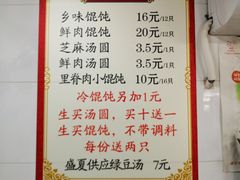 乡味馄饨 16元/12只
鲜肉馄饨 20元/12只
芝麻汤圆 3.5元/1只
鲜肉汤圆 3.5元/1只
里脊肉小馄饨 10元/16只
冷馄饨另加1元
生买汤圆、买十送一
生买馄饨、不带调料
每份送两只
盛夏供应绿豆汤 7元